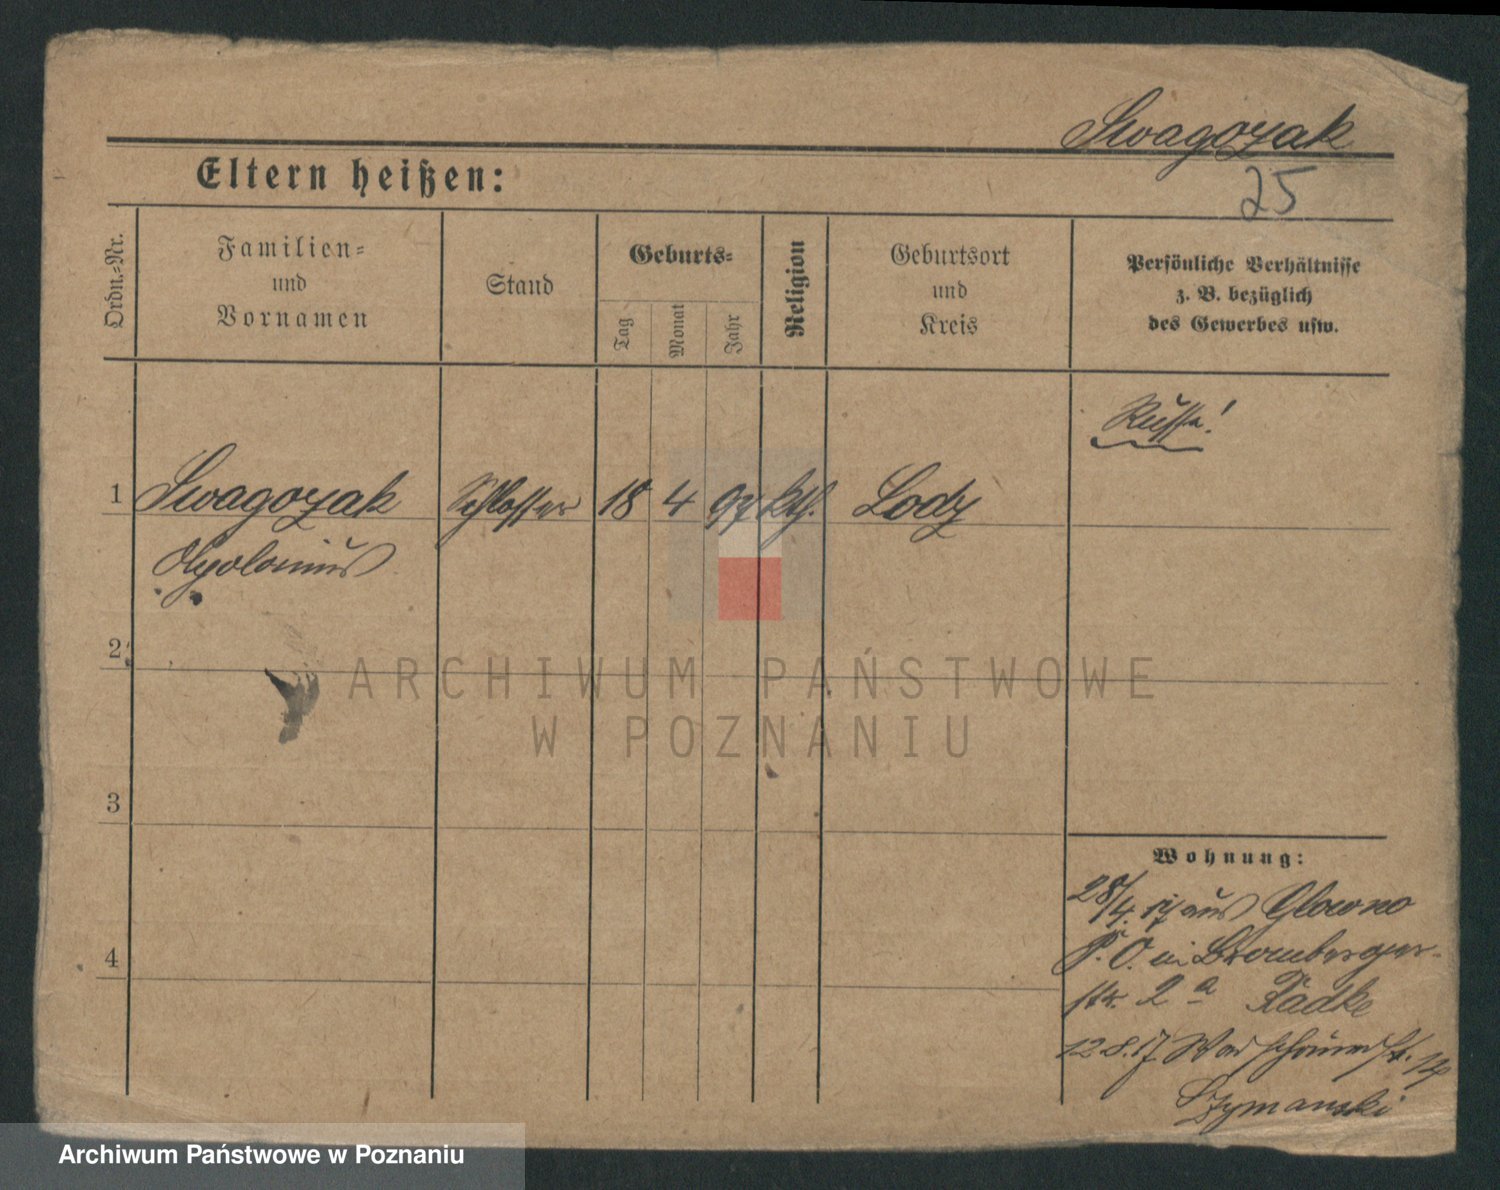 Swagozak
Eltern heißen:
25
Ordn.-Nr.
Familien-
und
Vornamen
Stand
Geburts-
Tag
Monat
Jahr
Religion
Geburtsort
und
Kreis
Persönliche Verhältnisse
z. B. bezüglich
des Gewerbes usw.
Russe!
1 Swagozak Schlosser 18 4 97 kth. Lodz
2
3
4
Wohnung:
28/4. 17 aus Glowno
P. O. in Bromberger-
str. 2 a Radke
12.8.17 Warschauerstr. 14
Szymanski
ARCHIWUM PAŃSTWOWE
W POZNANIU
Archiwum Państwowe w Poznaniu